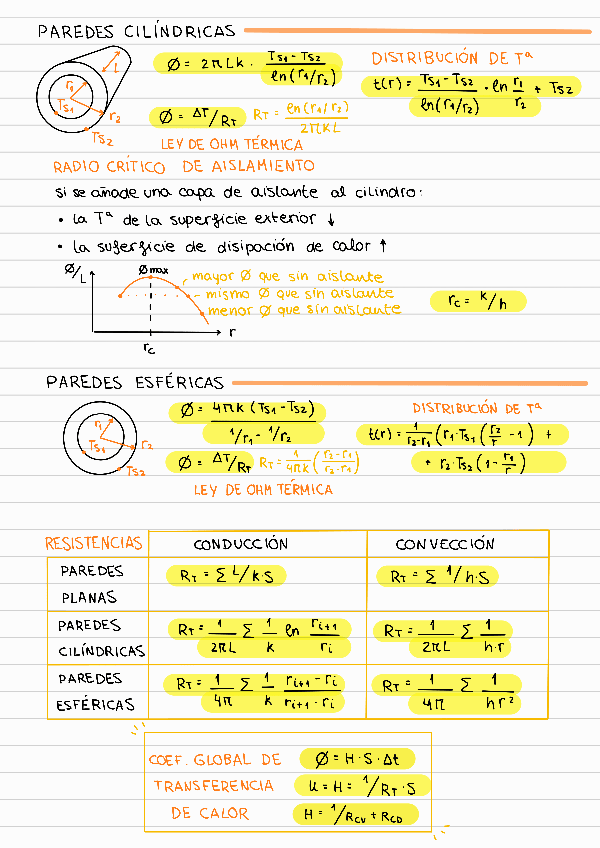 PAREDES CILÍNDRICAS
L
r1
Ts1
r2
Ts2
Ø = 2πLk · (Ts1 - Ts2) / ln(r1/r2)
Ø = ΔT/RT
RT = ln(r1/r2) / 2πkL
LEY DE OHM TÉRMICA
DISTRIBUCIÓN DE Tª
t(r) = (Ts1 - Ts2) / ln(r1/r2) · ln r1/r2 + Ts2
RADIO CRÍTICO DE AISLAMIENTO
si se añade una capa de aislante al cilindro:
• la Tª de la superficie exterior ↓
• la superficie de disipación de calor ↑
Ø/L
Ømax
mayor Ø que sin aislante
mismo Ø que sin aislante
menor Ø que sin aislante
r
rc
rc = k/h
PAREDES ESFÉRICAS
r1
Ts1
r2
Ts2
Ø = 4πk (Ts1 - Ts2) / (1/r1 - 1/r2)
Ø = ΔT/RT
RT = 1/4πk ((r2-r1)/(r2·r1))
LEY DE OHM TÉRMICA
DISTRIBUCIÓN DE Tª
t(r) = 1/(r2-r1) (r1·Ts1 (r2/r - 1) +
+ r2·Ts2 (1 - r1/r)
RESISTENCIAS CONDUCCIÓN CONVECCIÓN
PAREDES
PLANAS
RT = Σ L/k·S
RT = Σ 1/h·S
PAREDES
CILÍNDRICAS
RT = 1/2πL Σ 1/k ln ri+1/ri
RT = 1/2πL Σ 1/h·r
PAREDES
ESFÉRICAS
RT = 1/4π Σ 1/k (ri+1 - ri)/(ri+1 · ri)
RT = 1/4π Σ 1/hr²
COEF. GLOBAL DE
TRANSFERENCIA
DE CALOR
Ø = H·S·Δt
U = H = 1/RT·S
H = 1/RCV + RCD